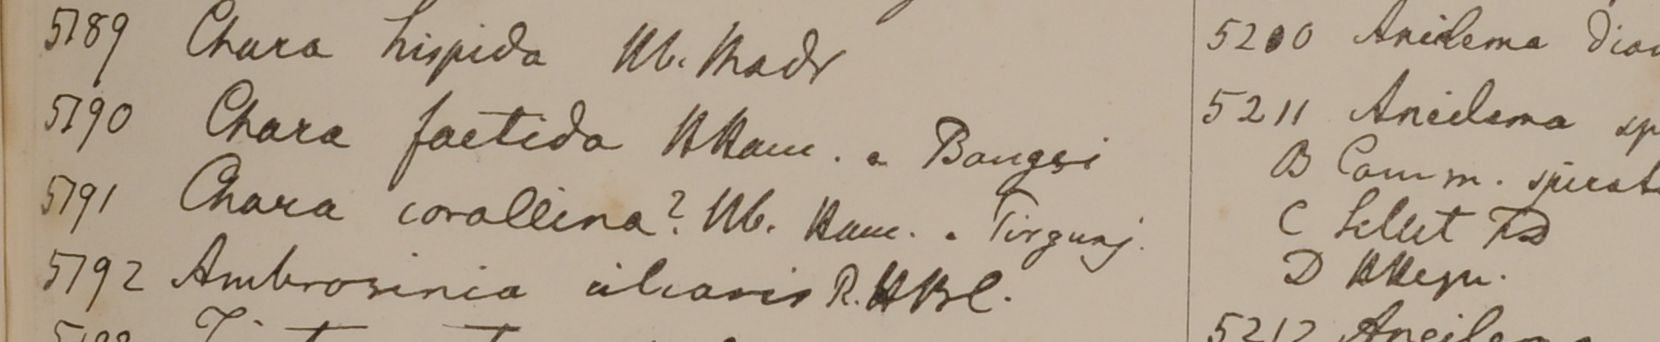 5189 Chara hispida Hb. Madr
5190 Chara faetida HHam. a Bangsi
5191 Chara corallina? Hb. Ham. a Tirgunj.
5192 Ambrosinia ciliaris R. HBC.
5200 Aneilema
5211 Aneilema sp
B Comm. spirat
C
D HHeyn.
5212 Aneilema